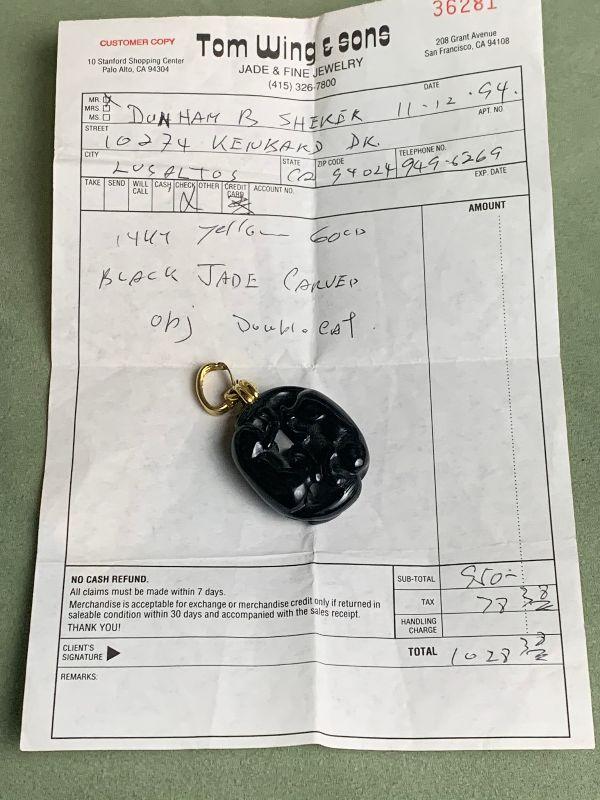 36281
CUSTOMER COPY
Tom Wing & sons
JADE & FINE JEWELRY
(415) 326-7800
10 Stanford Shopping Center
Palo Alto, CA 94304
208 Grant Avenue
San Francisco, CA 94108
MR. X
MRS
MS.
DUNHAM B SHERER
DATE
11-12.94.
STREET
APT. NO.
10274 KENBARD DR.
CITY
LUSALTOS
STATE
CA
ZIP CODE
94024
TELEPHONE NO.
949-6269
TAKE SEND WILL CALL CASH CHECK OTHER CREDIT CARD ACCOUNT NO. EXP. DATE
AMOUNT
14KY Yellow GOLD
BLACK JADE CARVED
obj Double Cat.
NO CASH REFUND.
All claims must be made within 7 days.
Merchandise is acceptable for exchange or merchandise credit only if returned in
saleable condition within 30 days and accompanied with the sales receipt.
THANK YOU!
SUB-TOTAL 950-
TAX 78 38
HANDLING CHARGE
CLIENT'S SIGNATURE
TOTAL 1028 38
REMARKS: